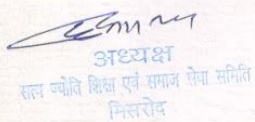 अध्यक्ष
सत्य ज्योति शिक्षा एवं समाज सेवा समिति
मिसरोद